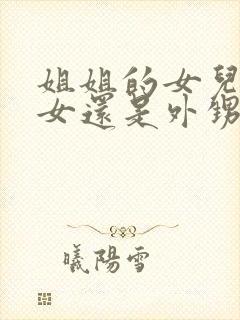 姐姐的女兒
女還是外甥
曦陽雪